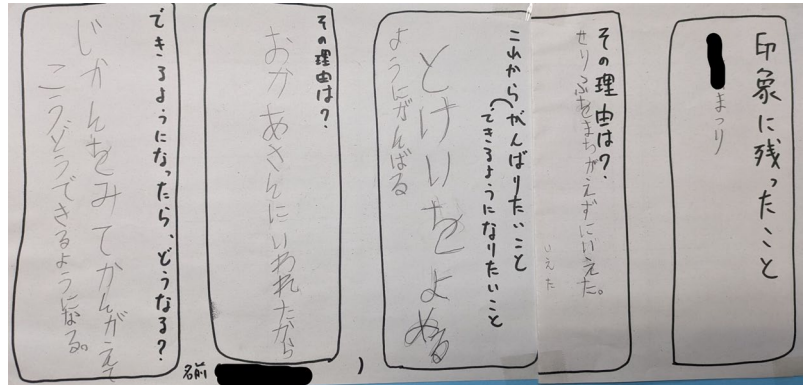 印象に残ったこと
まつり
その理由は？
せりふをまちがえずにいえた。
いえた
これからがんばりたいこと
(できるようになりたいこと
とけいをよめる
ようにがんばる
その理由は？
おかあさんにいわれたから
できるようになったら、どうなる？
じかんをみてかんがえて
こうどうできるようになる。
名前
)